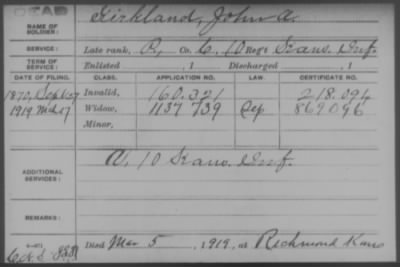 NAME OF SOLDIER: Kirkland, John A.
SERVICE: Late rank, P, Co. C, 10 Reg't Kans. Inf.
TERM OF SERVICE: Enlisted , 1 Discharged , 1
DATE OF FILING. CLASS. APPLICATION NO. LAW. CERTIFICATE NO.
1870, Sep 27 Invalid, 160.321 218.094
1919 Mch 27 Widow, 1137 739 869096
Minor,
ADDITIONAL SERVICES: A, 10 Kans. Inf.
REMARKS:
Died Mar 5, 1919, at Richmond Kans